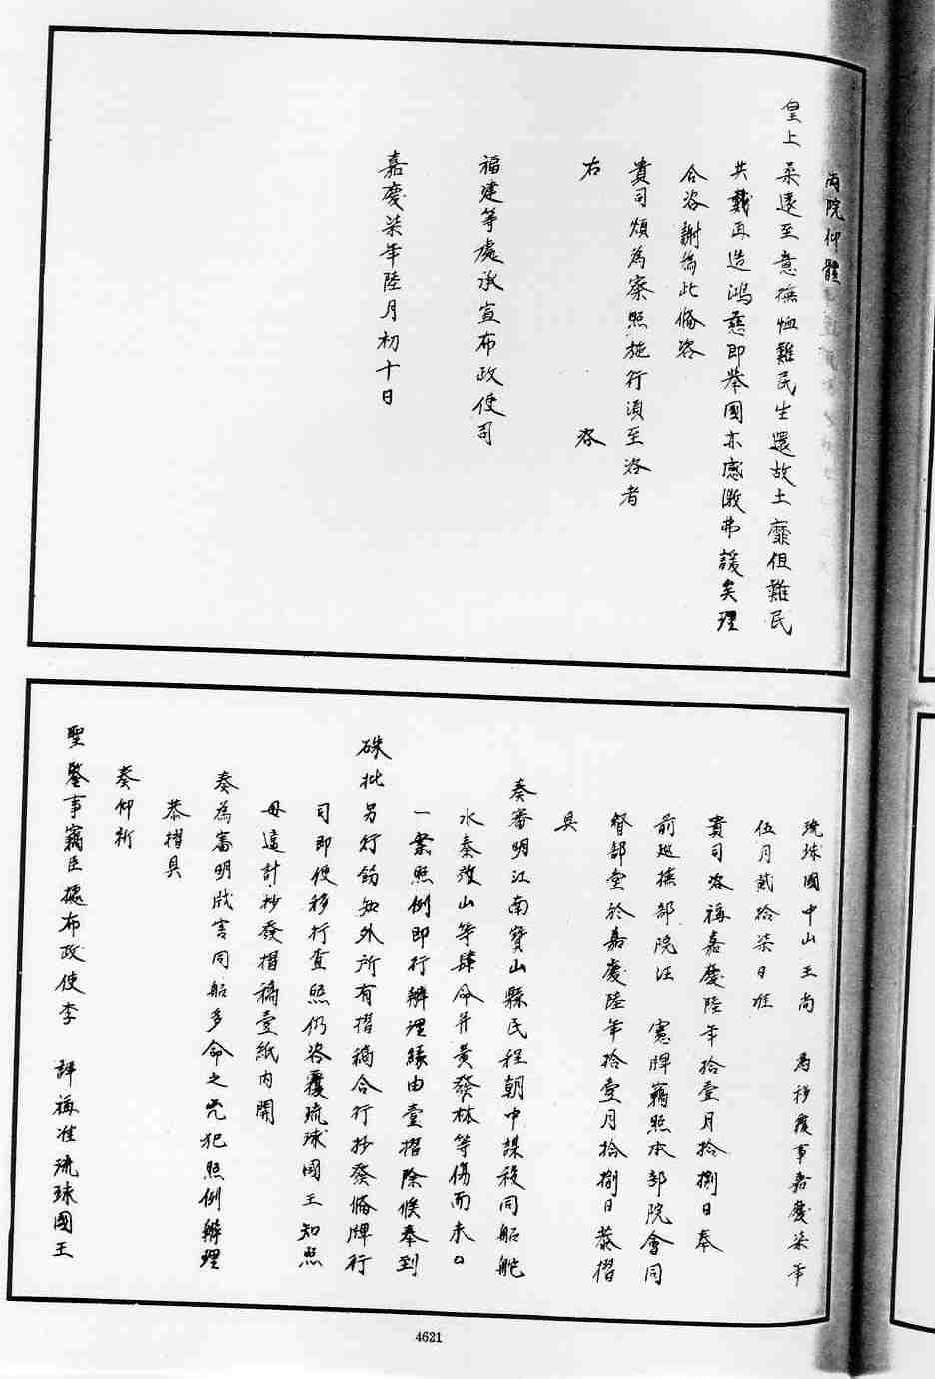 兩院仰體
皇上柔遠至意撫恤難民生還故土靡但難民
共戴再造鴻慈即舉國亦感激弗諼矣理
合咨謝為此俻咨
貴司煩為察照施行須至咨者
右　咨
福建等處承宣布政使司
嘉慶柒年陸月初十日
琉球國中山王尚　為移覆事嘉慶柒年
伍月貳拾柒日准
貴司咨稱嘉慶陸年拾壹月拾捌日奉
前廵撫部院汪　憲牌竊照本部院會同
督部堂於嘉慶陸年拾壹月拾捌日恭摺
具
奏審明江南寶山縣民程朝中謀殺同船舵
水秦改山等肆命并黃發林等傷而未〇
一案照例即行辦理緣由壹摺除候奉到
硃批另行飭知外所有摺稿合行抄發俻牌行
司即便移行查照仍咨覆琉球國王知照
毋違計抄發摺稿壹紙內開
奏為審明戕害同船多命之兇犯照例辦理
恭摺具
奏仰祈
聖鑒事竊臣據布政使李　詳稱准琉球國王
4621